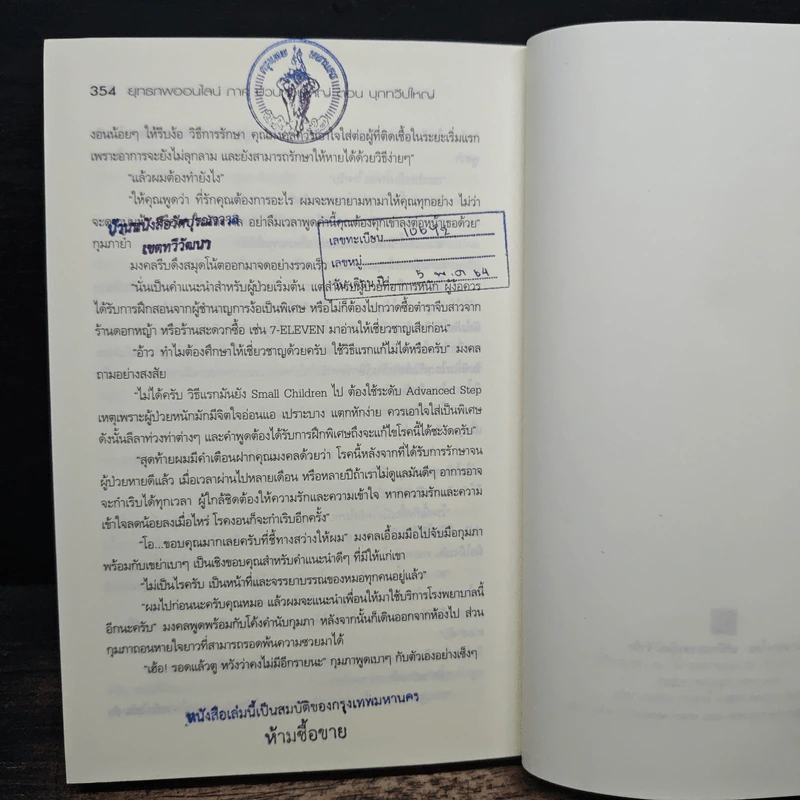 354 ยุทธภพออนไลน์ ภาค ตอน บุกทวีปใหญ่
งอนน้อยๆ ให้รีบง้อ วิธีการรักษา คุณมงคลควรเอาใจใส่ต่อผู้ที่ติดเชื้อในระยะเริ่มแรก
เพราะอาการจะยังไม่ลุกลาม และยังสามารถรักษาให้หายได้ด้วยวิธีง่ายๆ"
"แล้วผมต้องทำยังไง"
"ให้คุณพูดว่า ที่รักคุณต้องการอะไร ผมจะพยายามหามาให้คุณทุกอย่าง ไม่ว่า
อย่าลืมเวลาพูดคำนี้คุณต้องคุกเข่าลงต่อหน้าเธอด้วย"
บ้านหนังสือวัดปุรณาวาส
เขตทวีวัฒนา
กุมภาย้ำ
เลขทะเบียน 10692
เลขหมู่
5 พ.ค 64
มงคลรีบดึงสมุดโน้ตออกมาจดอย่างรวดเร็ว
"นั่นเป็นคำแนะนำสำหรับผู้ป่วยเริ่มต้น แต่สำหรับผู้ป่วยที่อาการหนัก ผู้ง้อควร
ได้รับการฝึกสอนจากผู้ชำนาญการง้อเป็นพิเศษ หรือไม่ก็ต้องไปกวาดซื้อตำราจีบสาวจาก
ร้านดอกหญ้า หรือร้านสะดวกซื้อ เช่น 7-ELEVEN มาอ่านให้เชี่ยวชาญเสียก่อน"
"อ้าว ทำไมต้องศึกษาให้เชี่ยวชาญด้วยครับ ใช้วิธีแรกแก้ไม่ได้หรือครับ" มงคล
ถามอย่างสงสัย
"ไม่ได้ครับ วิธีแรกมันยัง Small Children ไป ต้องใช้ระดับ Advanced Step
เหตุเพราะผู้ป่วยหนักมักมีจิตใจอ่อนแอ เปราะบาง แตกหักง่าย ควรเอาใจใส่เป็นพิเศษ
ดังนั้นลีลาท่วงท่าต่างๆ และคำพูดต้องได้รับการฝึกพิเศษถึงจะแก้ไขโรคนี้ได้ชะงัดครับ"
"สุดท้ายผมมีคำเตือนฝากคุณมงคลด้วยว่า โรคนี้หลังจากที่ได้รับการรักษาจน
ผู้ป่วยหายดีแล้ว เมื่อเวลาผ่านไปหลายเดือน หรือหลายปีถ้าเราไม่ดูแลมันดีๆ อาการอาจ
จะกำเริบได้ทุกเวลา ผู้ใกล้ชิดต้องให้ความรักและความเข้าใจ หากความรักและความ
เข้าใจลดน้อยลงเมื่อไหร่ โรคงอนก็จะกำเริบอีกครั้ง"
"โอ...ขอบคุณมากเลยครับที่ชี้ทางสว่างให้ผม" มงคลเอื้อมมือไปจับมือกุมภา
พร้อมกับเขย่าเบาๆ เป็นเชิงขอบคุณสำหรับคำแนะนำดีๆ ที่มีให้แก่เขา
"ไม่เป็นไรครับ เป็นหน้าที่และจรรยาบรรณของหมอทุกคนอยู่แล้ว"
"ผมไปก่อนนะครับคุณหมอ แล้วผมจะแนะนำเพื่อนให้มาใช้บริการโรงพยาบาลนี้
อีกนะครับ" มงคลพูดพร้อมกับโค้งคำนับกุมภา หลังจากนั้นก็เดินออกจากห้องไป ส่วน
กุมภาถอนหายใจยาวที่สามารถรอดพ้นความซวยมาได้
"เฮ้อ! รอดแล้วตู หวังว่าคงไม่มีอีกรายนะ" กุมภาพูดเบาๆ กับตัวเองอย่างเซ็งๆ
หนังสือเล่มนี้เป็นสมบัติของกรุงเทพมหานคร
ห้ามซื้อขาย